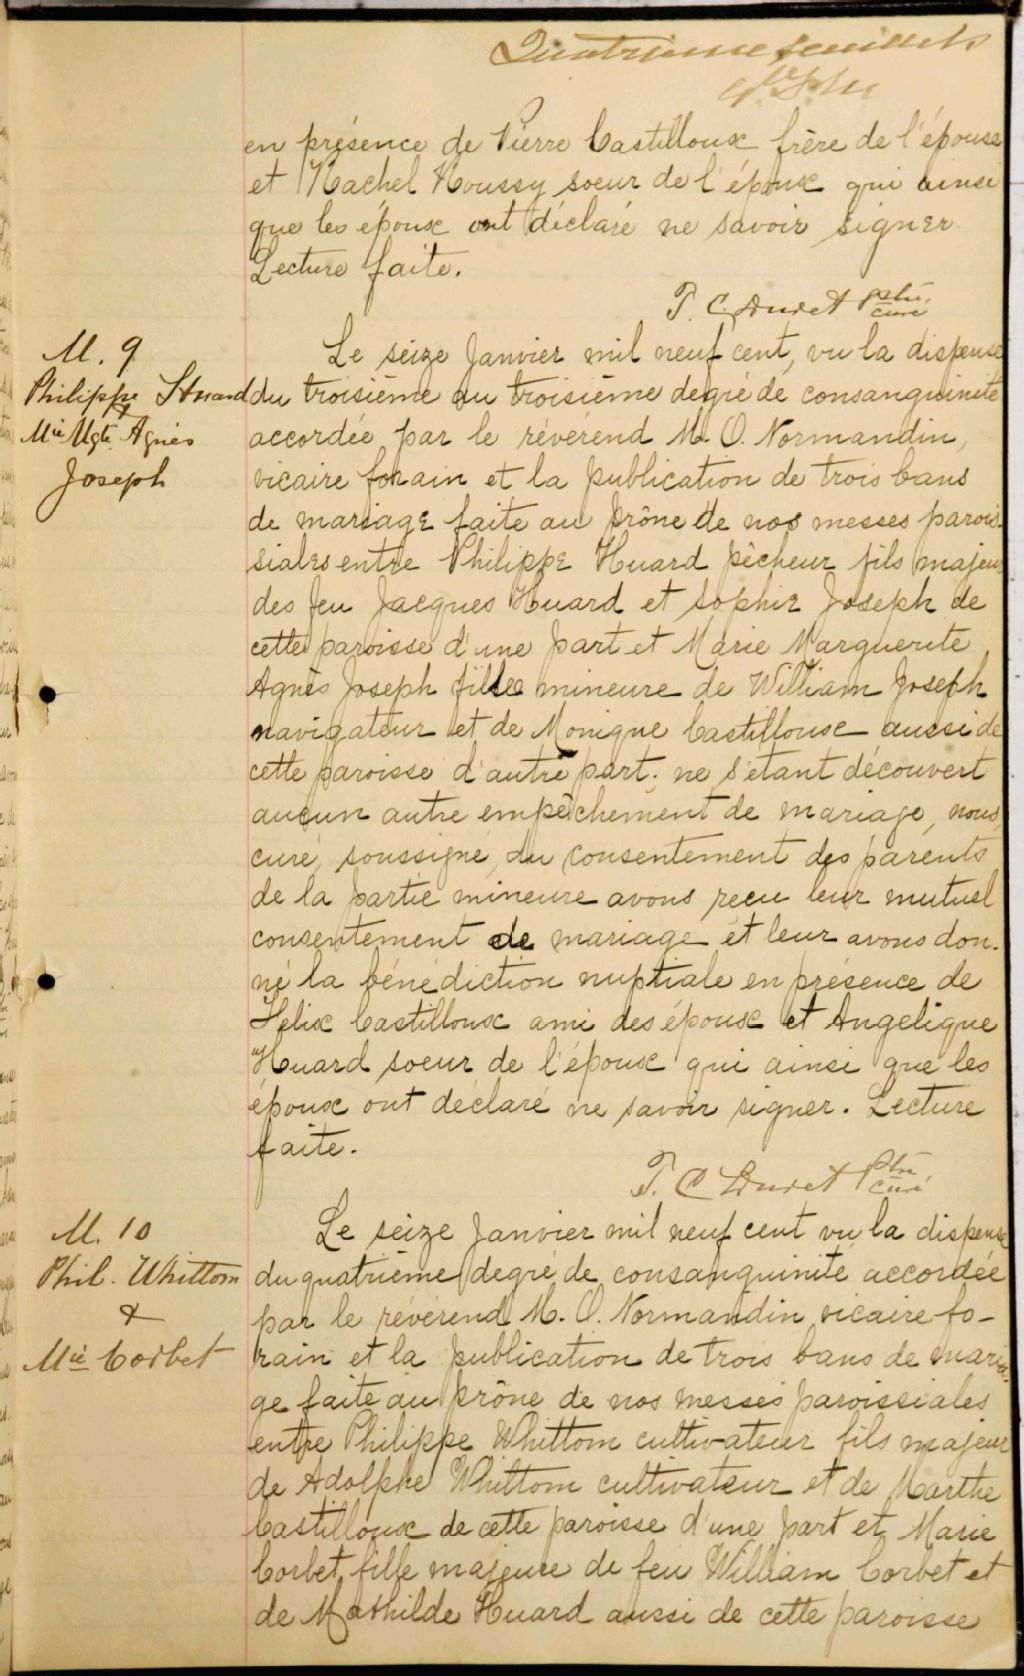 Quatrième feuillet
en présence de Pierre Castilloux frère de l'épouse
et Rachel Houssy soeur de l'époux qui ainsi
que les époux ont déclaré ne savoir signer
Lecture faite.
T. C. Duret ptre
curé
M. 9
Philippe Huard
&
Mie Mgte Agnès
Joseph
Le seize Janvier mil neuf cent, vu la dispense
du troisième au troisième degré de consanguinité
accordée par le révérend M. O. Normandin,
vicaire forain et la publication de trois bans
de mariage faite au prône de nos messes parois-
siales entre Philippe Huard pêcheur fils majeur
des feu Jacques Huard et Sophie Joseph de
cette paroisse d'une part et Marie Marguerite
Agnès Joseph fille mineure de William Joseph
navigateur et de Monique Castilloux aussi de
cette paroisse d'autre part. ne s'étant découvert
aucun autre empêchement de mariage, nous,
curé, soussigné, du consentement des parents
de la partie mineure avons reçu leur mutuel
consentement de mariage et leur avons don-
né la bénédiction nuptiale en présence de
Félix Castilloux ami des époux et Angelique
Huard soeur de l'époux qui ainsi que les
époux ont déclaré ne savoir signer. Lecture
faite.
T. C. Duret ptre
curé
M. 10
Phil. Whittom
&
Mie Corbet
Le seize Janvier mil neuf cent vu la dispense
du quatrième degré de consanguinité accordée
par le révérend M. O. Normandin vicaire fo-
rain et la publication de trois bans de maria-
ge faite au prône de nos messes paroissiales
entre Philippe Whittom cultivateur fils majeur
de Adolphe Whittom cultivateur et de Marthe
Castilloux de cette paroisse d'une part et Marie
Corbet fille majeure de feu William Corbet et
de Mathilde Huard aussi de cette paroisse